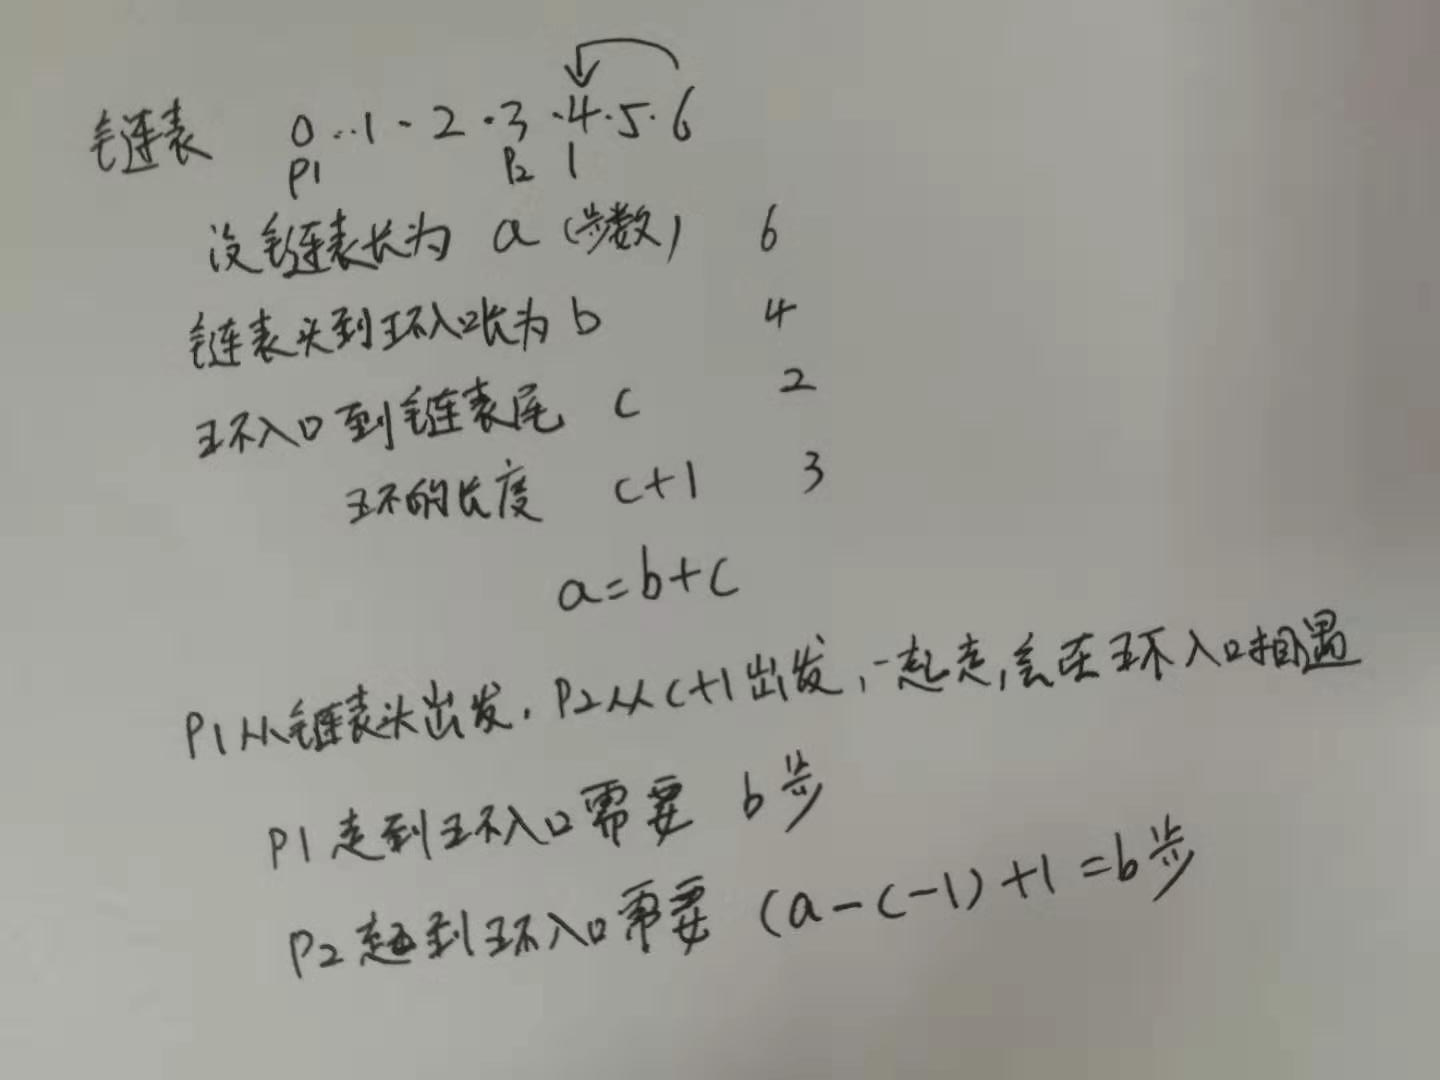 链表 0··1·2·3·4·5·6
P1 P2 1
设链表长为 a (步数) 6
链表头到环入口长为 b 4
环入口到链表尾 c 2
环的长度 c+1 3
a=b+c
P1从链表头出发, P2从c+1出发,一起走,会在环入口相遇
P1走到环入口需要 b步
P2走到环入口需要 (a-c-1)+1=b步